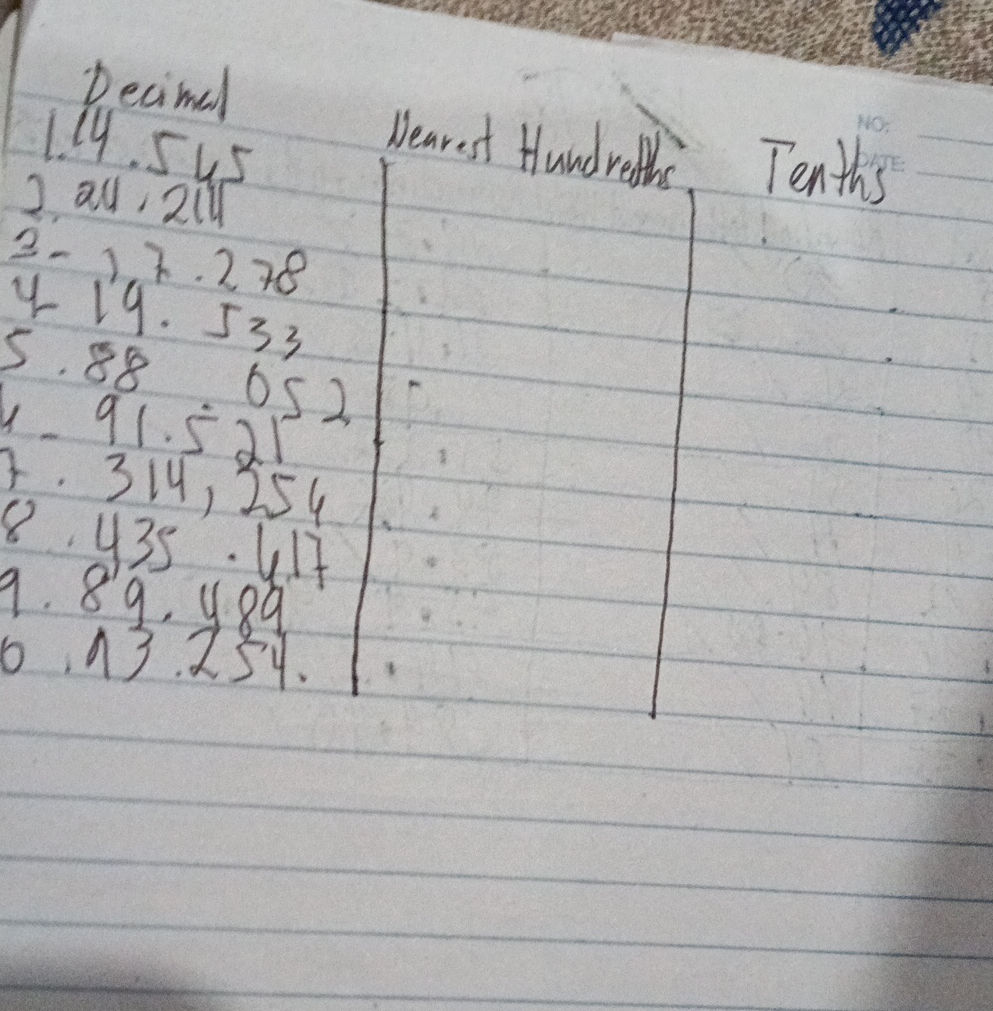 Decimal Nearest Hundredths Tenths
NO:
DATE:
1. 14.545
2. 24,214
3- 17.278
4- 19.533
5. 88.052
6- 91.521
7. 314,254
8. 435.417
9. 89.489
0. 13.254.